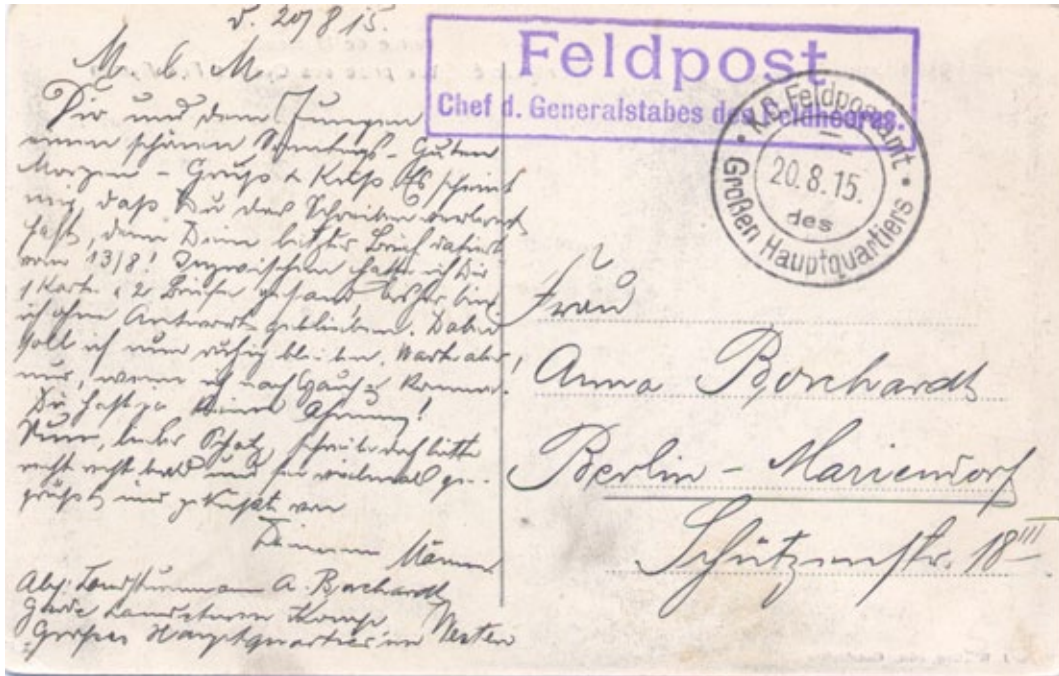 d. 20/8 15.
M l M
Dir und dem Jungen
einen schönen Sonntags-Guten
Morgen-Gruß & Kuß. Es scheint
mir, daß Du das Schreiben verlernt
hast, denn Dein letzter Brief datiert
vom 13/8! Inzwischen hatte ich Dir
1 Karte & 2 Briefe gesandt bisher bin
ich ohne Antwort geblieben. Dabei
soll ich nun ruhig bleiben. Warte aber
nur, wenn ich nach Hause komme!
Du hast ja keine Ahnung!
Nun, lieber Schatz, schreibe doch bitte
recht recht bald und sei vielmals ge-
grüßt und geküßt von
Deinem Männe
Abs: Landsturmmann A. Borchardt
Garde Landsturm Komp.
Großes Hauptquartier im Westen
Feldpost
Chef d. Generalstabes des Feldheeres.
K.P. Feldpostamt
20.8.15.
des
Großen Hauptquartiers
Frau
Anna Borchardt
Berlin - Mariendorf
Schützenstr. 18III